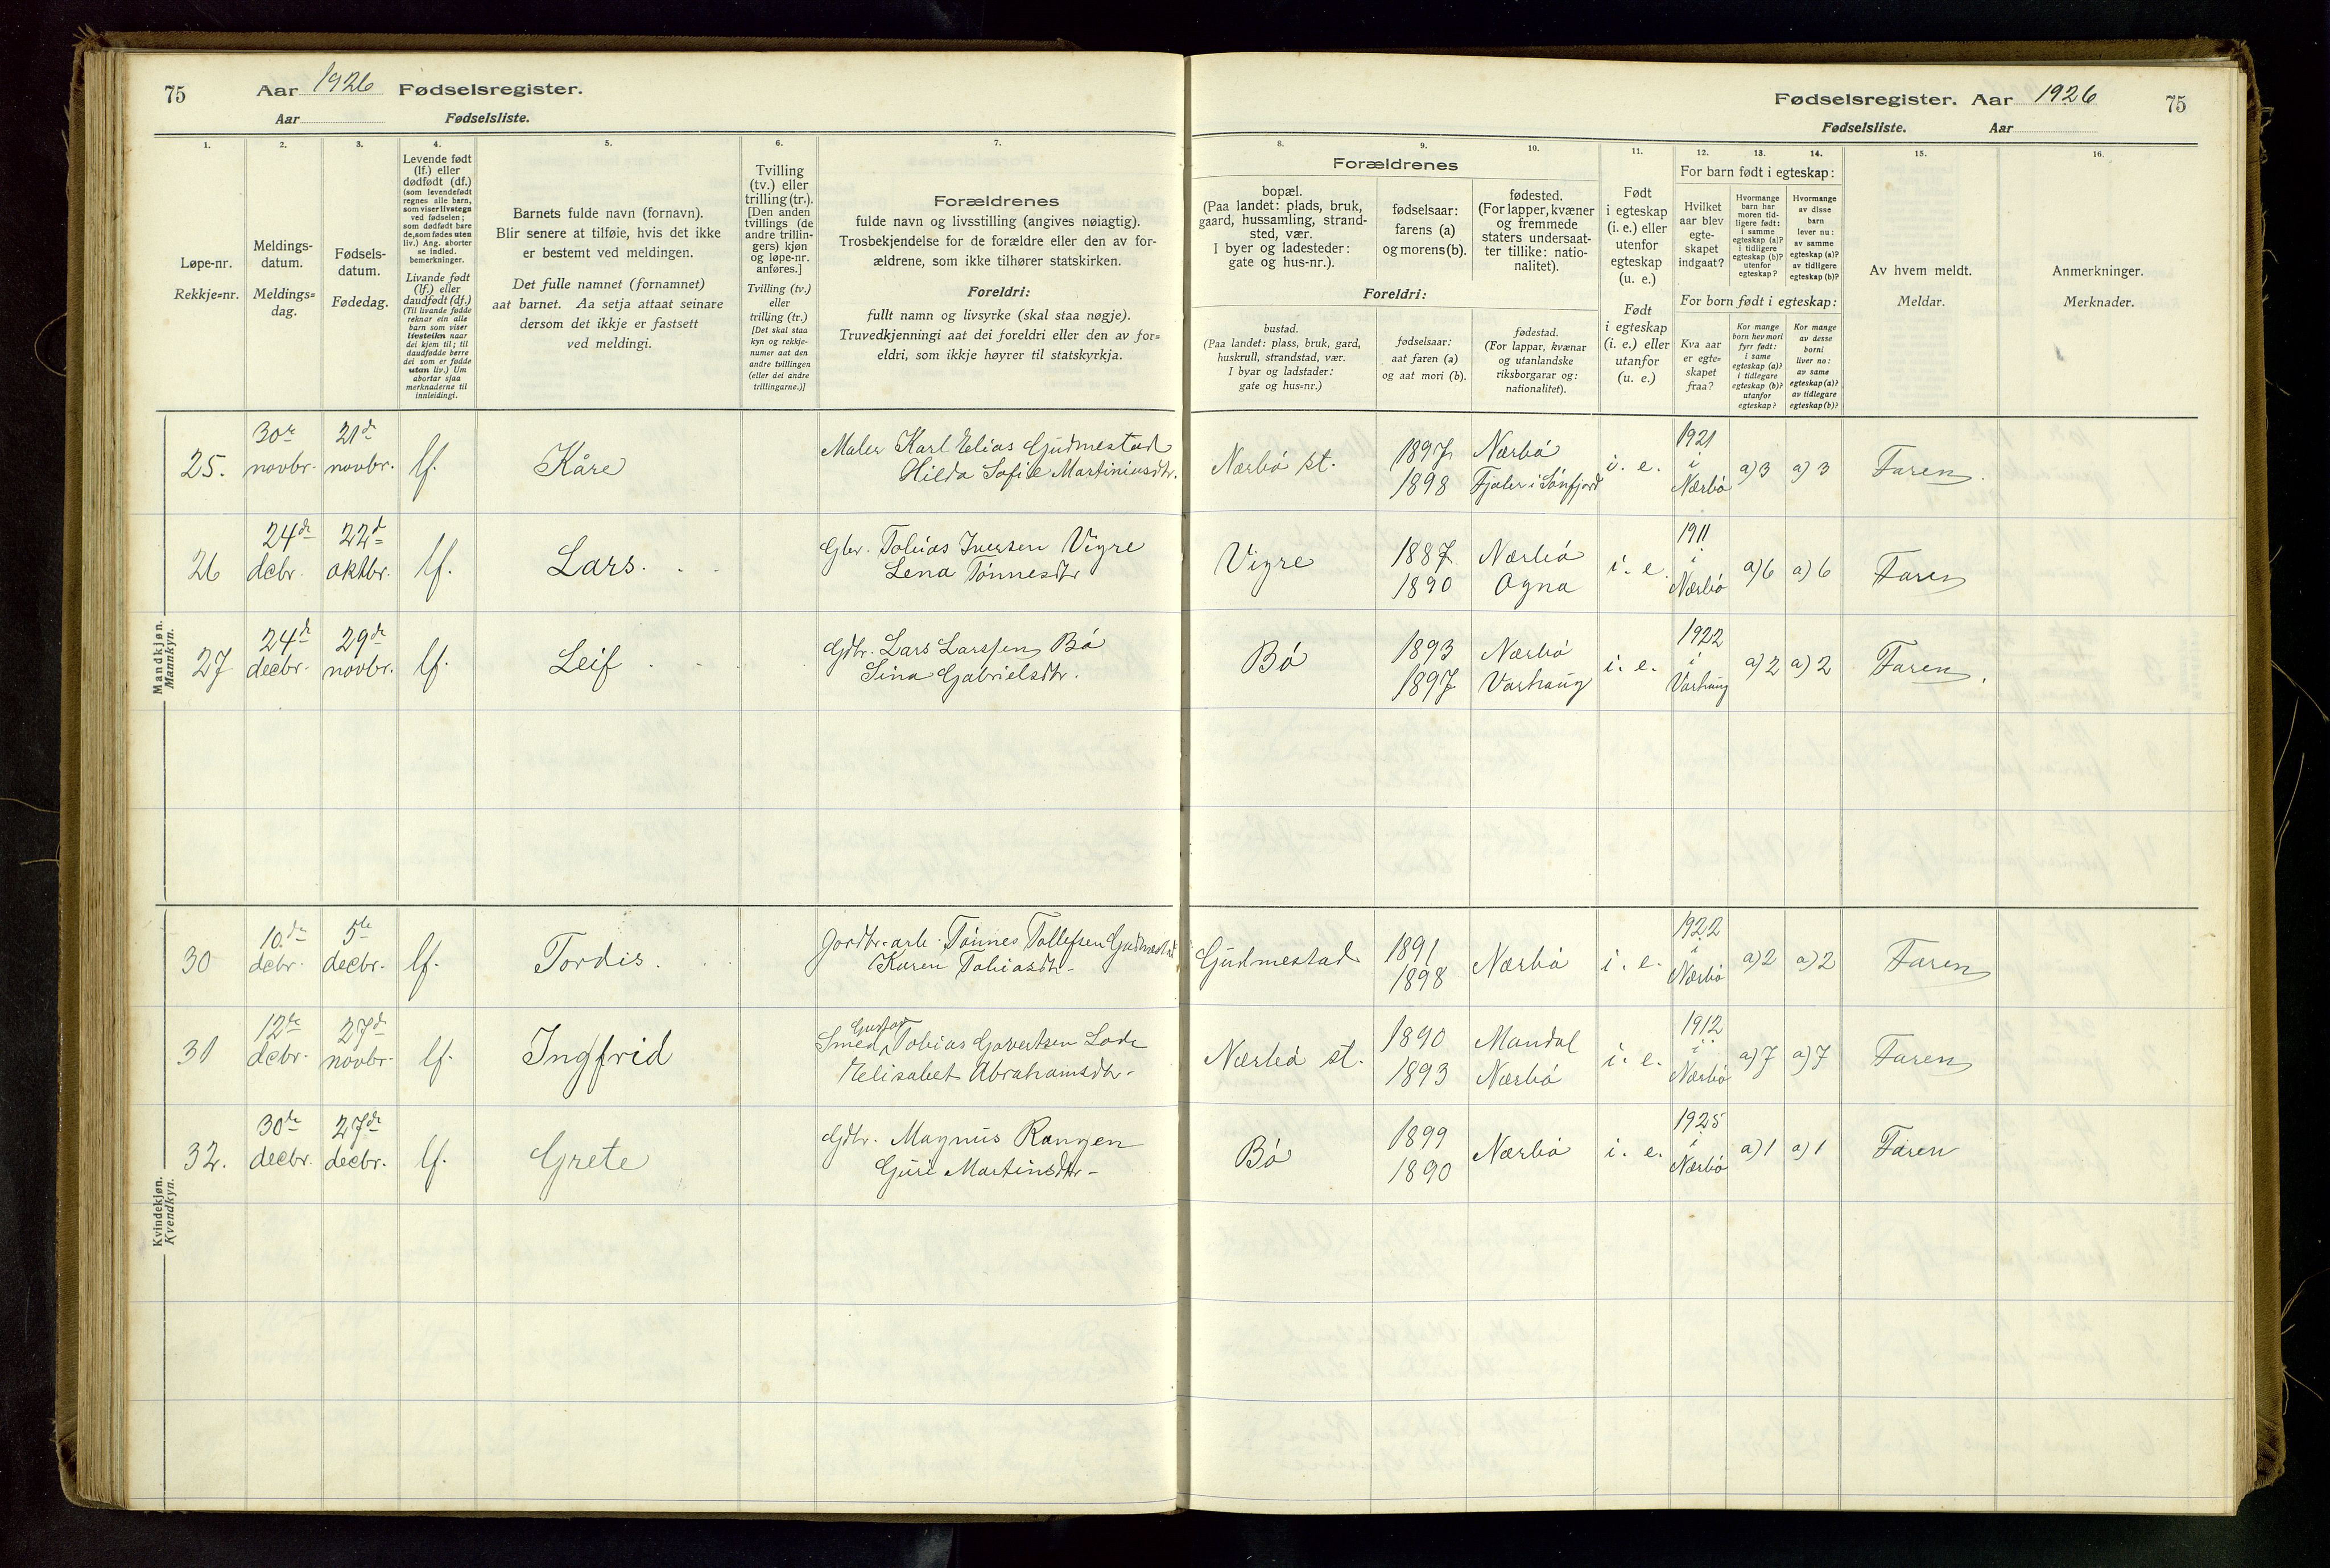 75 Aar 1926 Fødselsregister.
Aar Fødselsliste.
1. 2. 3. 4. 5. 6. 7.
Løpe-nr.
Rekkje=nr.
Meldings-
datum.
Meldings=
dag.
Fødsels-
datum.
Fødedag.
Levende født
(lf.) eller
dødfødt (df.)
(som levendefødt
regnes alle barn,
som viser livstegn
ved fødselen;
som dødfødt bare
de, som fødes uten
liv.) Ang. aborter
se indled.
bemerkninger.
Livande født
(lf.) eller
daudfødt (df.)
(Til livande fødde
reknar ein alle
barn som viser
livsteikn naar
dei kjem til; til
daudfødde berre
dei som er fødde
utan liv.) Um
abortar sjaa
merknaderne til
innleidingi.
Barnets fulde navn (fornavn).
Blir senere at tilføie, hvis det ikke
er bestemt ved meldingen.
Det fulle namnet (fornamnet)
aat barnet. Aa setja attaat seinare
dersom det ikkje er fastsett
ved meldingi.
Tvilling
(tv.) eller
trilling (tr.).
[Den anden
tvillings (de
andre trillin-
gers) kjøn
og løpe-nr.
anføres.]
Tvilling (tv.)
eller
trilling (tr.)
[Det skal staa
kyn og rekkje-
numer aat den
andre tvillingen
(eller dei andre
trillingarne.)]
Forældrenes
fulde navn og livsstilling (angives nøiagtig).
Trosbekjendelse for de forældre eller den av for-
ældrene, som ikke tilhører statskirken.
Foreldri:
fullt namn og livsyrke (skal staa nøgje).
Truvedkjenningi aat dei foreldri eller den av for=
eldri, som ikkje høyrer til statskyrkja.
Mandkjøn.
Mannkyn.
25. 30te novbr. 21de novbr. lf. Kåre
Maler Karl Elias Gudmestad
Hilda Sofie Martiniusdtr.
26 24de debr. 22d oktbr. lf. Lars.
Gbr. Tobias Iversen Vigre
Lena Tönnesdtr
27 24de decbr. 29de novbr. lf. Leif
Gdbr. Lars Larssen Bö
Sina Gabrielsdtr.
Kvindekjøn.
Kvendkyn.
30 10.de debr. 5te decbr. lf. Tordis.
Jordbr.arb. Tönnes Tollefsen Gudmestad
Karen Tobiasdtr-
31 12te debr. 27d novbr. lf. Ingfrid
Gustav
Smed Tobias Govertsen Lode
Elisabet Abrahamsdtr-
32. 30te decbr. 27de decbr. lf. Grete
Gdbr. Magnus Rangen
Guri Martinsdtr-
Fødselsregister. Aar 1926 75
Fødselsliste. Aar
8. 9. 10. 11. 12. 13. 14. 15. 16.
Forældrenes
bopæl.
(Paa landet: plads, bruk,
gaard, hussamling, strand-
sted, vær.
I byer og ladesteder:
gate og hus-nr.).
fødselsaar:
farens (a)
og morens (b).
fødested.
(For lapper, kvæner
og fremmede
staters undersaat-
ter tillike: natio-
nalitet).
Foreldri:
bustad.
(Paa landet: plass, bruk, gard,
huskrull, strandstad, vær.
I byar og ladstader:
gate og hus=nr.)
fødselsaar:
aat faren (a)
og aat mori (b).
fødestad.
(For lappar, kvænar
og utanlandske
riksborgarar og:
nationalitet).
Født
i egteskap
(i. e.) eller
utenfor
egteskap
(u. e.)
Født
i egteskap
(i. e.) eller
utanfor
(u. e.)
For barn født i egteskap:
Hvilket
aar blev
egte-
skapet
indgaat?
Hvormange
barn har
moren tid-
ligere født:
i samme
egteskap (a)?
i tidligere
egteskap (b)?
utenfor
egteskap?
Hvormange
av disse
barn
lever nu:
av samme
egteskap (a)?
av tidligere
egteskap (b)?
For born født i egteskap:
Kva aar
er egte=
skapet
fraa?
Kor mange
born hev mori
fyrr født:
i same
egteskap (a)?
i tidlegare
egteskap (b)?
utanfor
egteskap?
Kor mange
av desse
borni
liver no:
av same
egteskap (a)?
av tidlegare
egteskap (b)?
Av hvem meldt.
Meldar.
Anmerkninger.
Merknader.
Nærbö st. 1897 Nærbö i. e. 1921 i Nærbö a) 3 a) 3 Faren
1898 Fjaler i Sönfjord
Vigre 1887 Nærbö i. e. 1911 i Nærbö a) 6 a) 6 Faren
1890 Ogna
Bö 1893 Nærbö i. e. 1922 i Varhaug a) 2 a) 2 Faren
1897 Varhaug
Gudmestad 1891 Nærbö i. e. 1922 i Nærbö a) 2 a) 2 Faren
1898
Nærbö st. 1890 Mandal i. e. 1912 i Nærbö a) 7 a) 7 Faren
1893 Nærbö
Bö 1899 Nærbö i. e. 1925 i Nærbö a) 1 a) 1 Faren
1890